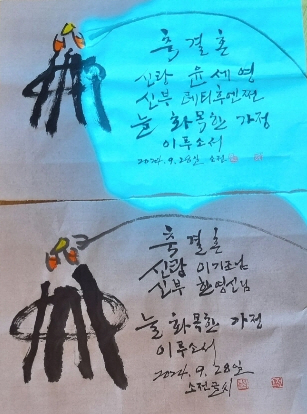 축 결혼
신랑 윤세영
신부 레티후엔쩐
늘 화목한 가정
이루소서
2024. 9. 28일 소전
축 결혼
신랑 이기조님
신부 한영선님
늘 화목한 가정
이루소서
2024. 9. 28일
소전글씨